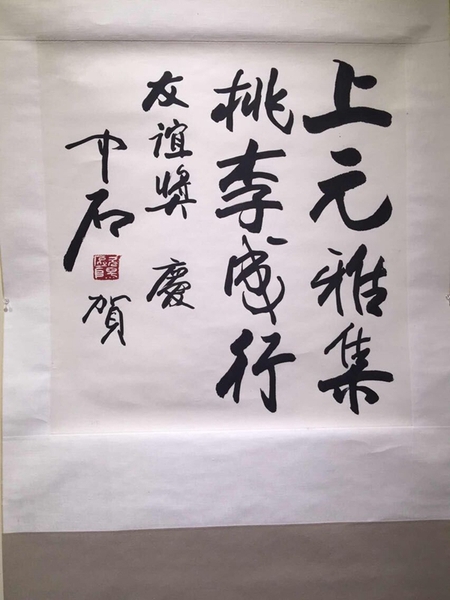 上元雅集
桃李成行
友谊奖 慶
中石 賀